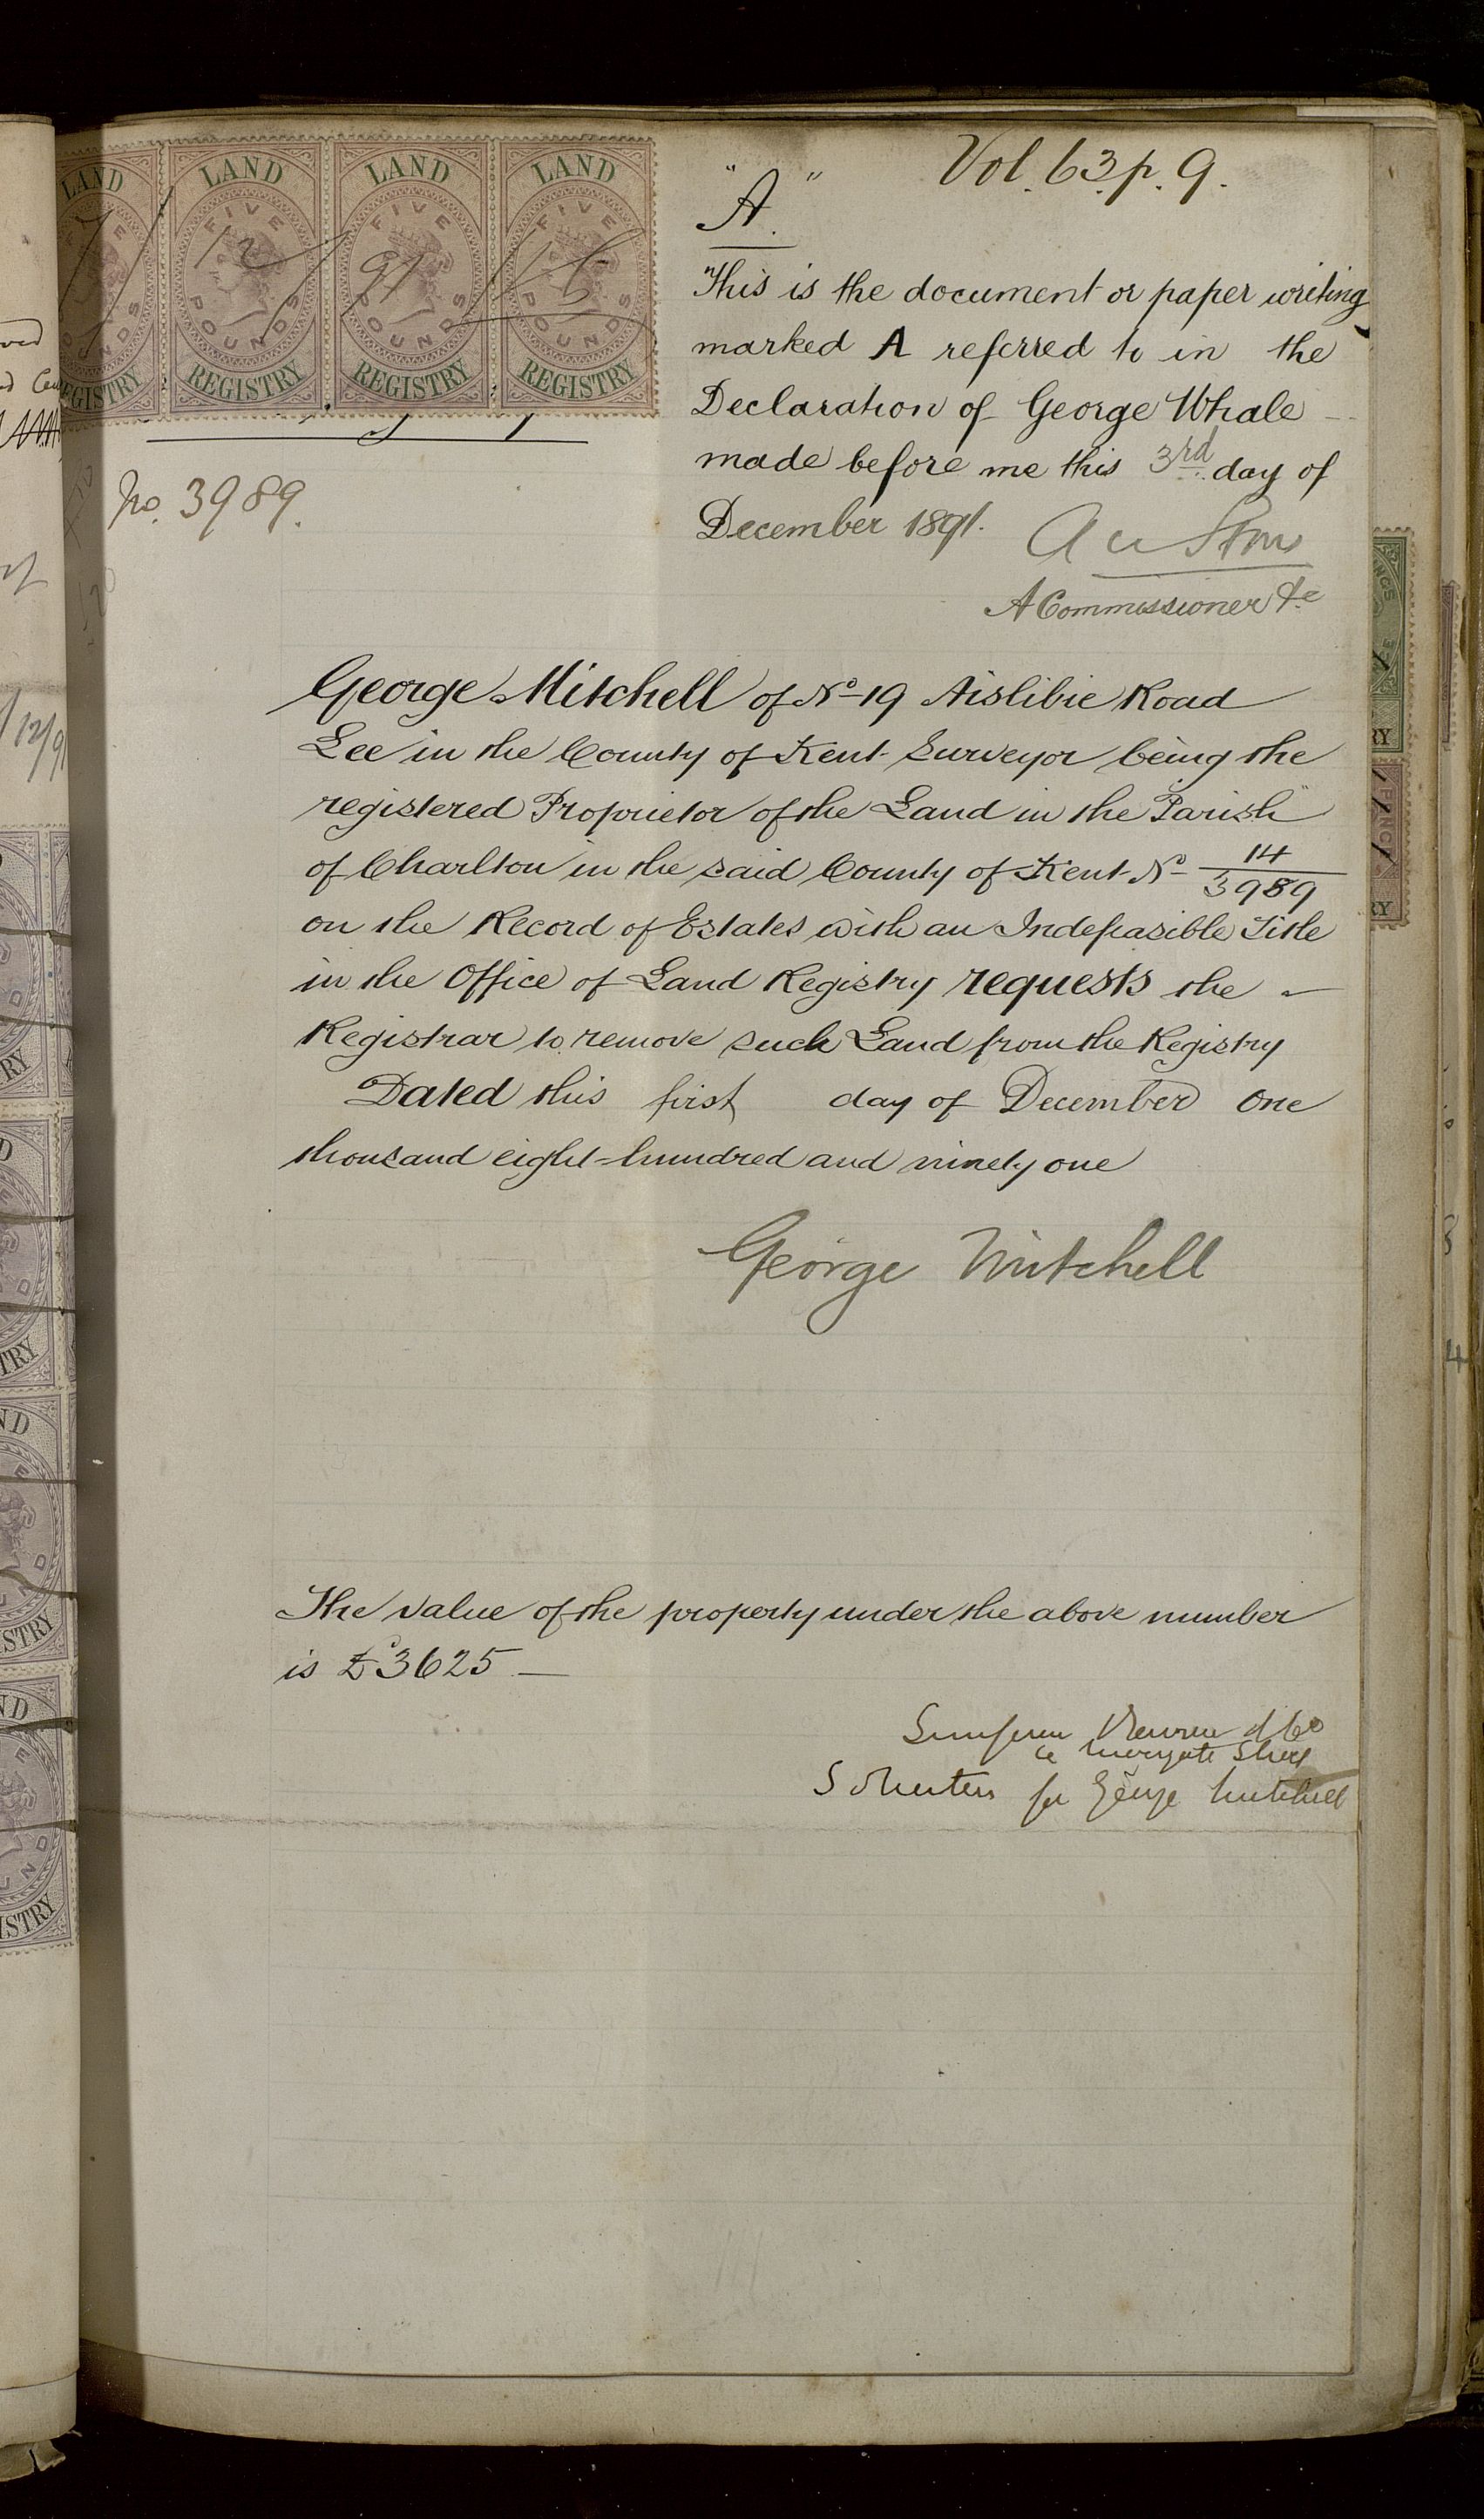 Vol. 63. p. 9.
"A."
LAND LAND LAND LAND
FIVE POUNDS FIVE POUNDS FIVE POUNDS
12 91
REGISTRY REGISTRY REGISTRY REGISTRY
No. 3989.
"This is the document or paper writing
marked A referred to in the
Declaration of George Whale
made before me this 3rd day of
December 1891.
A Commissioner &c
George Mitchell of No 19 Aislibie Road
Lee in the County of Kent Surveyor being the
registered Proprietor of the Land in the Parish
of Charlton in the said County of Kent No 14/3989
on the Record of Estates with an Indefeasible Title
in the Office of Land Registry requests the
Registrar to remove such Land from the Registry
Dated this first day of December One
thousand eight hundred and ninety one
George Mitchell
The value of the property under the above number
is £3625
& Co
Moorgate Street
Solicitors for George Mitchell